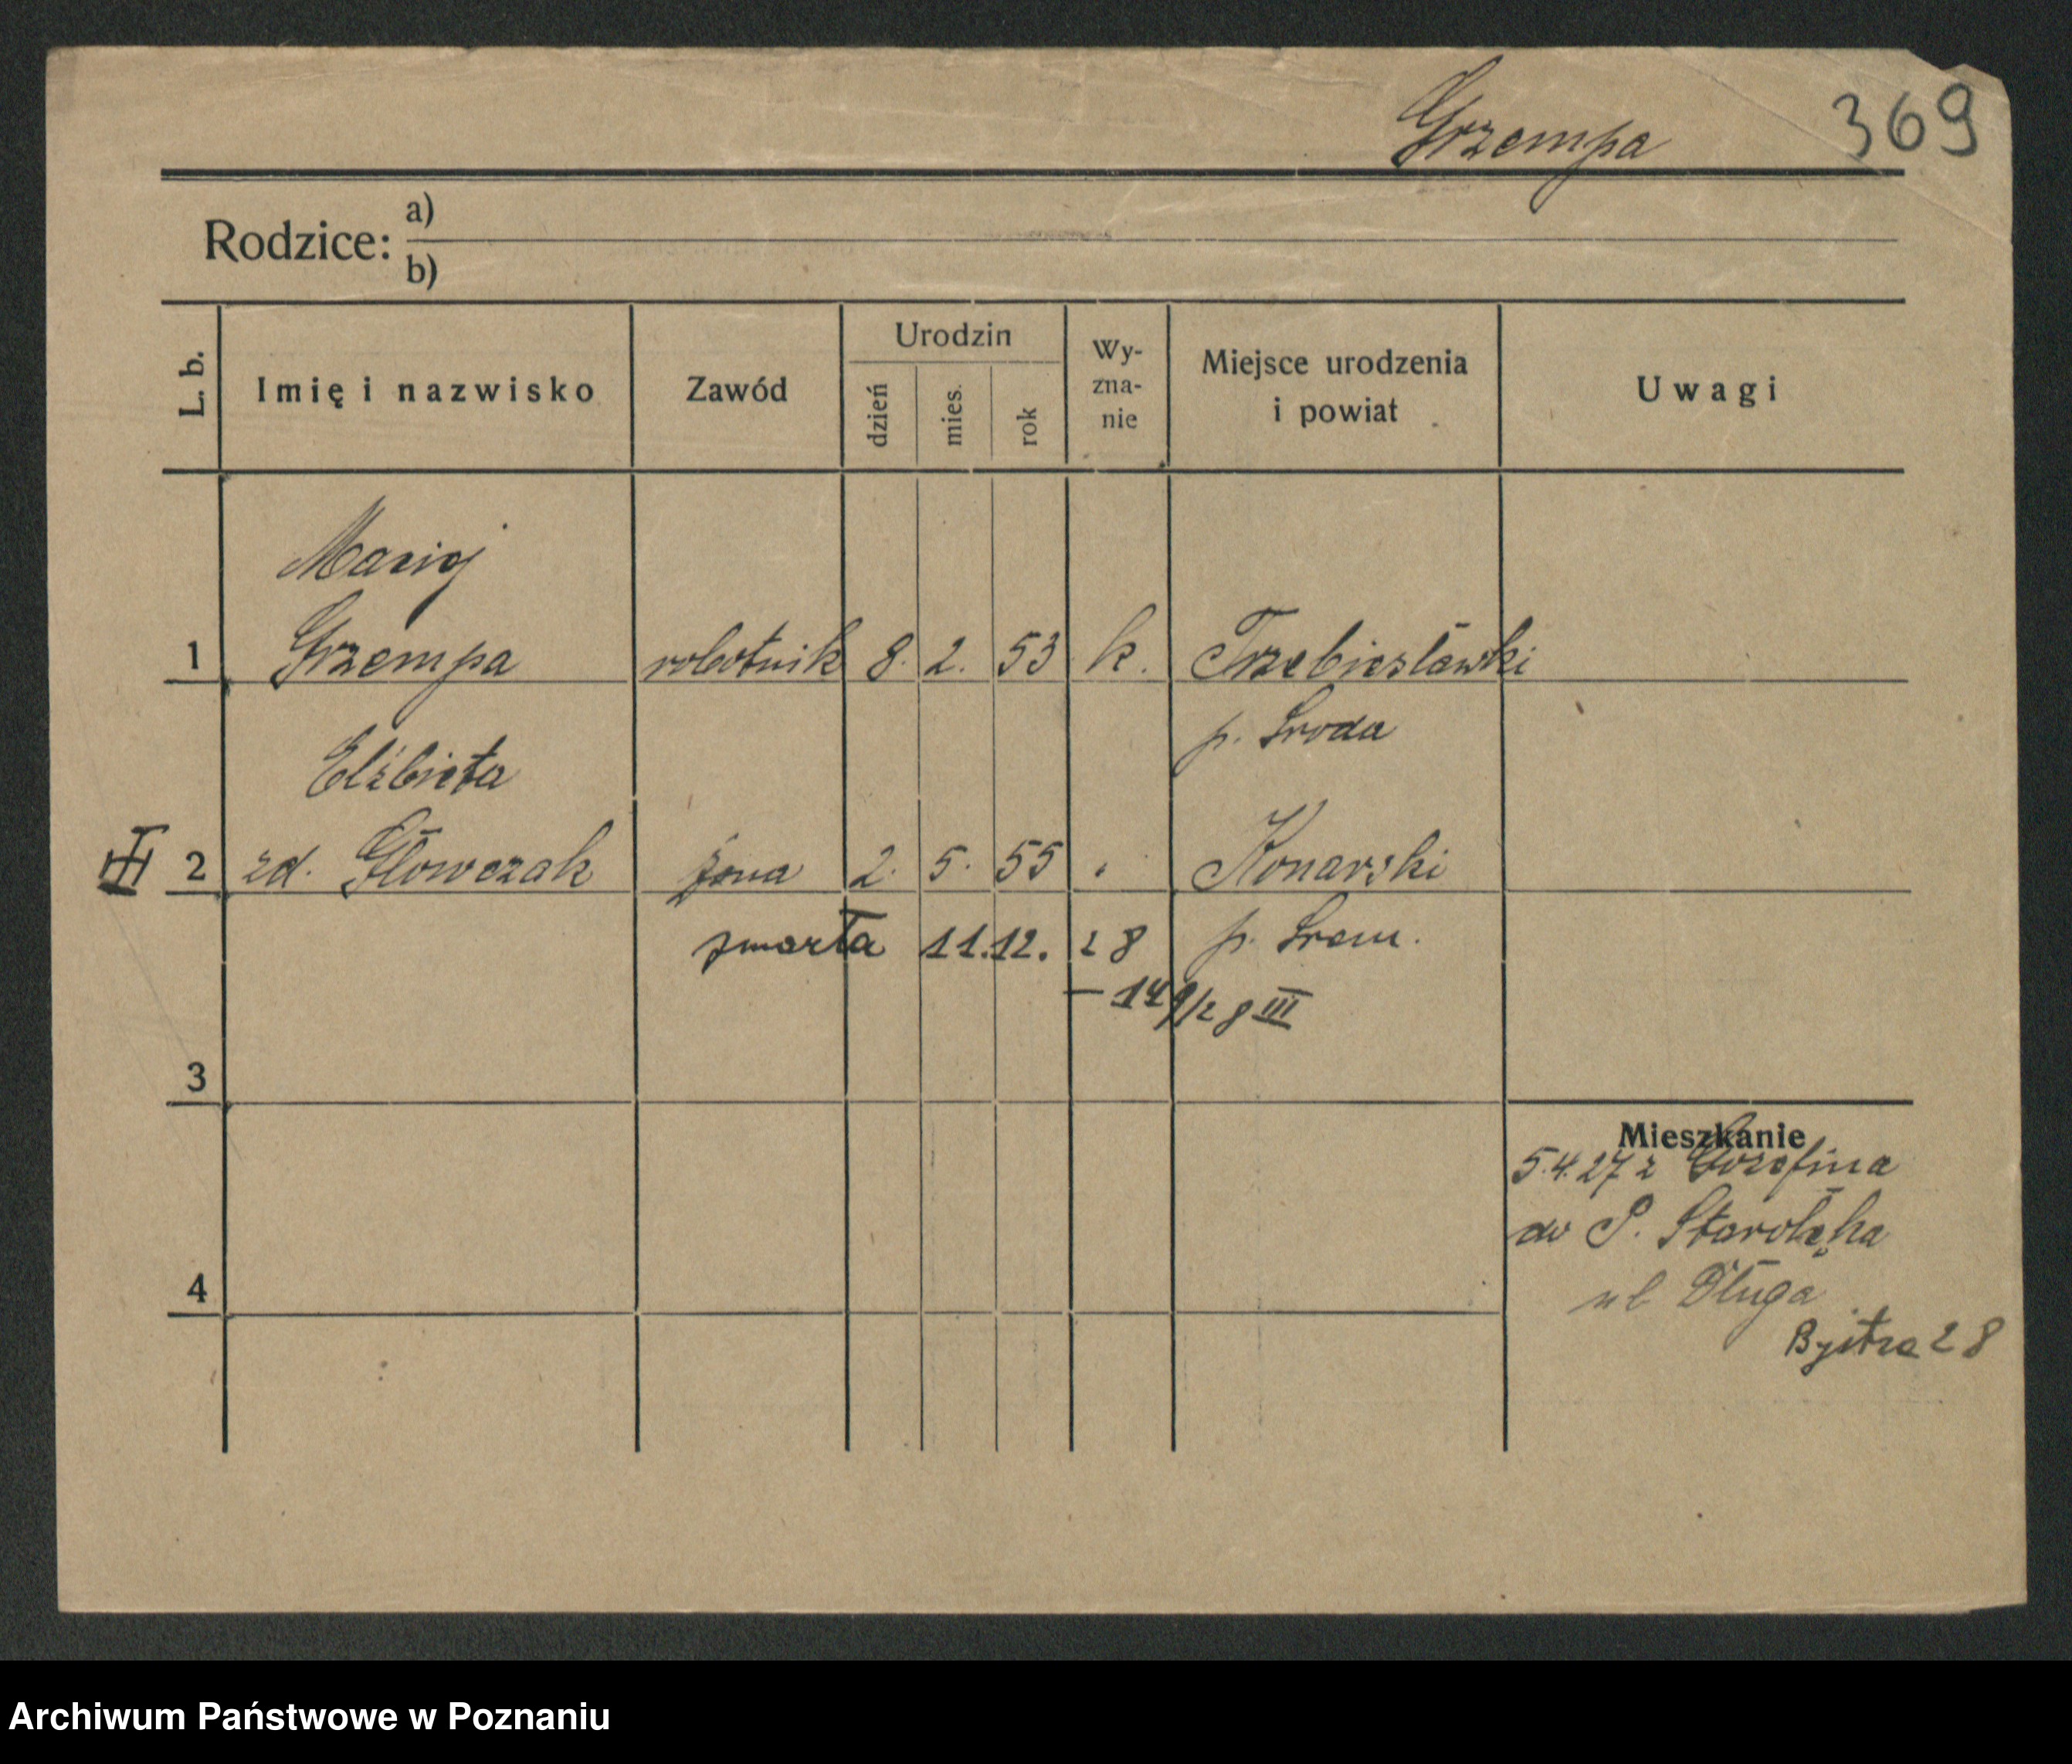 Grzempa 369
Rodzice: a)
b)
L. b. Imię i nazwisko Zawód Urodzin dzień mies. rok Wy-zna-nie Miejsce urodzenia i powiat Uwagi
Maciej
1 Grzempa robotnik 8. 2. 53 k. Trzebiesławki
p. Środa
Elżbieta
III 2 zd. Głowczak żona 2. 5. 55 " Konarski
zmarła 11.12. 28 p. Śrem.
– 149/28 III
3
Mieszkanie
5.4.27 z Józefina
do P. Starołęka
4
ul Długa
Bystra 28
Archiwum Państwowe w Poznaniu